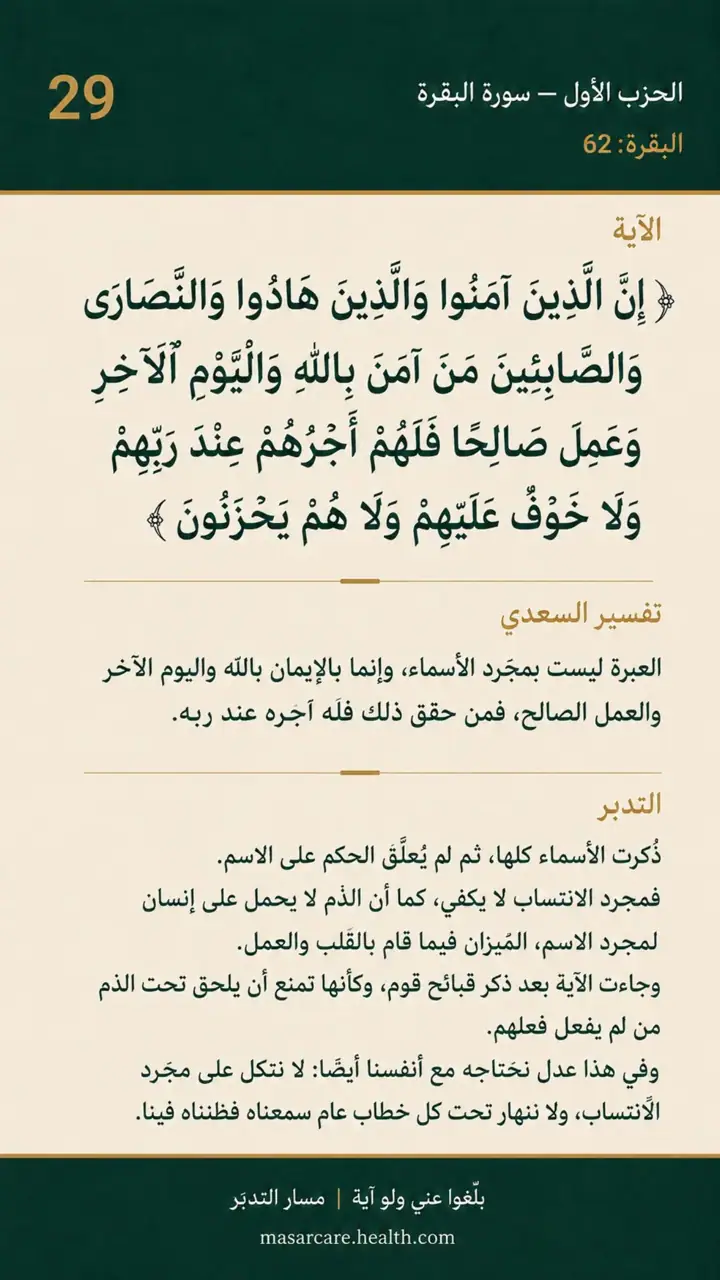 29
الحزب الأول — سورة البقرة
البقرة: 62
الآية
﴿ إِنَّ الَّذِينَ آمَنُوا وَالَّذِينَ هَادُوا وَالنَّصَارَى
وَالصَّابِئِينَ مَنْ آمَنَ بِاللَّهِ وَالْيَّوْمِ ٱلَآخِرِ
وَعَمِلَ صَالِحًا فَلَهُمْ أَجْرُهُمْ عِنْدَ رَبِّهِمْ
وَلَا خَوْفٌ عَلَيّهِمْ وَلَا هُمْ يَحْزَنُونَ ﴾
تفسير السعدي
العبرة ليست بمجَرد الأسماء، وإنما بالإيمان بالله واليوم الآخر
والعمل الصالح، فمن حقق ذلك فلَه آجَره عند ربه.
التدبر
ذُكرت الأسماء كلها، ثم لم يُعلَّقَ الحكم على الاسم.
فمجرد الانتساب لا يكفي، كما أن الذْم لا يحمل على إنسان
لمجرد الاسم، المْيزان فيما قام بالقَلب والعمل.
وجاءت الآية بعد ذكر قبائح قوم، وكأنها تمنع أن يلحق تحت الذم
من لم يفعل فعلهم.
وفي هذا عدل نحَتاجه مع أنفسنا أيضًا: لا نتكل على مجَرد
الًانتساب، ولا ننهار تحت كل خطاب عام سمعناه فظنناه فينا.
بلّغوا عني ولو آية | مسار التدبَر
masarcare.health.com